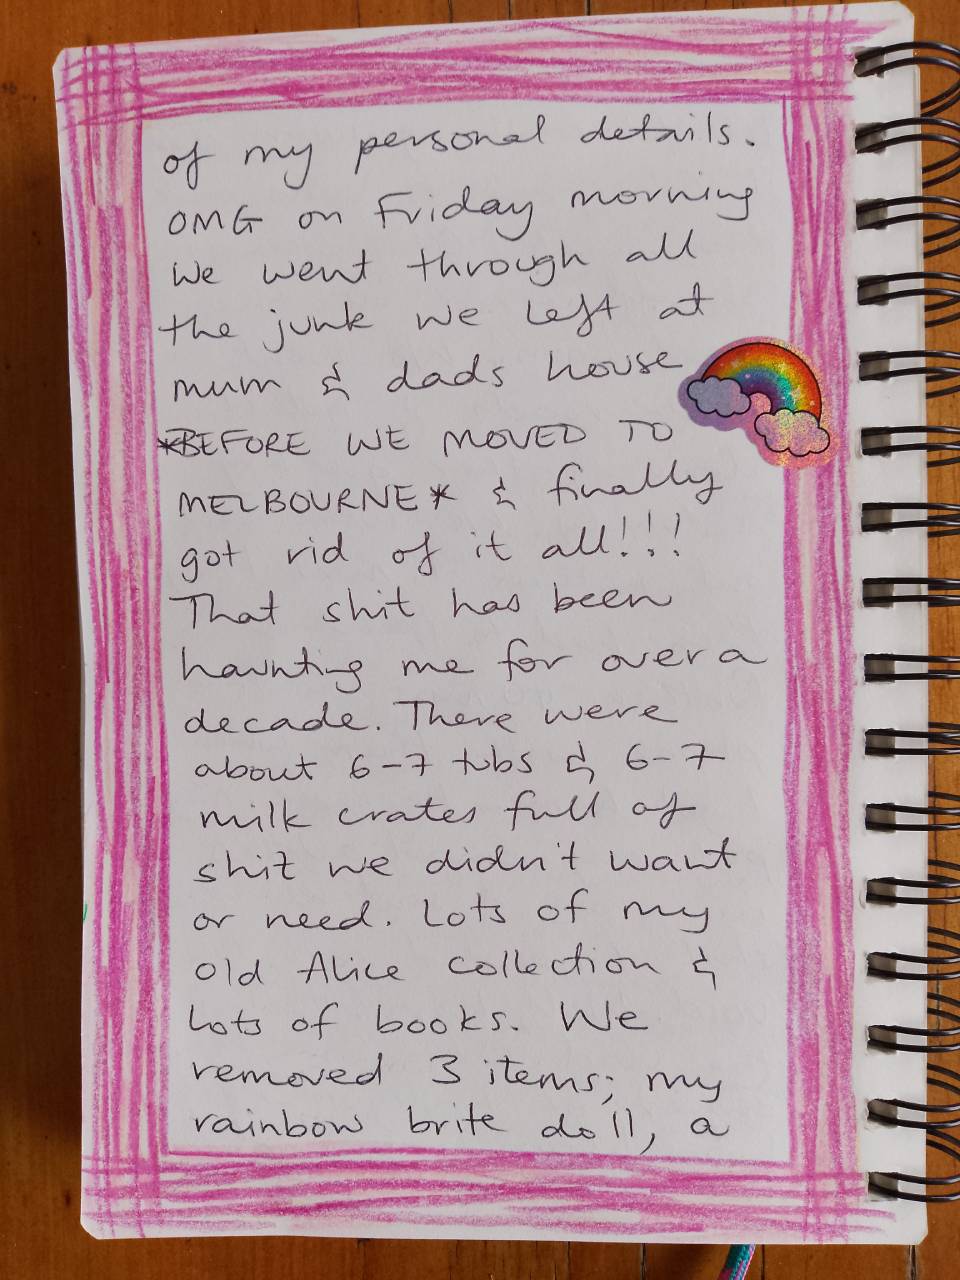 of my personal details.
OMG on Friday morning
we went through all
the junk we left at
mum & dads house
*BEFORE WE MOVED TO
MELBOURNE* & finally
got rid of it all!!!
That shit has been
haunting me for over a
decade. There were
about 6-7 tubs & 6-7
milk crates full of
shit we didn't want
or need. Lots of my
old Alice collection &
lots of books. We
removed 3 items; my
rainbow brite doll, a